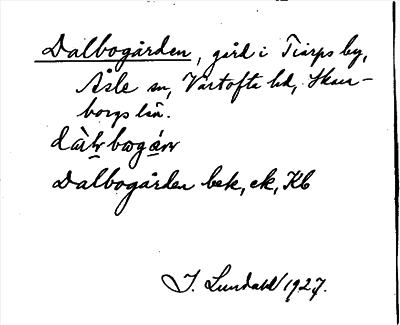 Dalbogården, gård i Tiarps by,
Åsle sn, Vartofta hd, Skara-
borgs län.
Dalbogården bek, ek, Kb
I. Lundahl 1927.